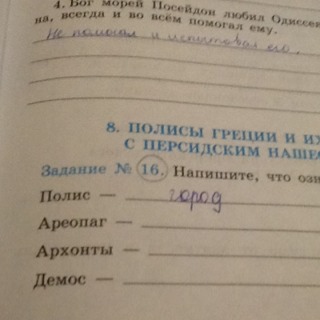 4. Бог морей Посейдон любил Одиссея
на, всегда и во всём помогал ему.
Не помогал и испытовал его.
8. ПОЛИСЫ ГРЕЦИИ И ИХ
С ПЕРСИДСКИМ НАШЕ
Задание № 16. Напишите, что озн
Полис — город
Ареопаг —
Архонты —
Демос —